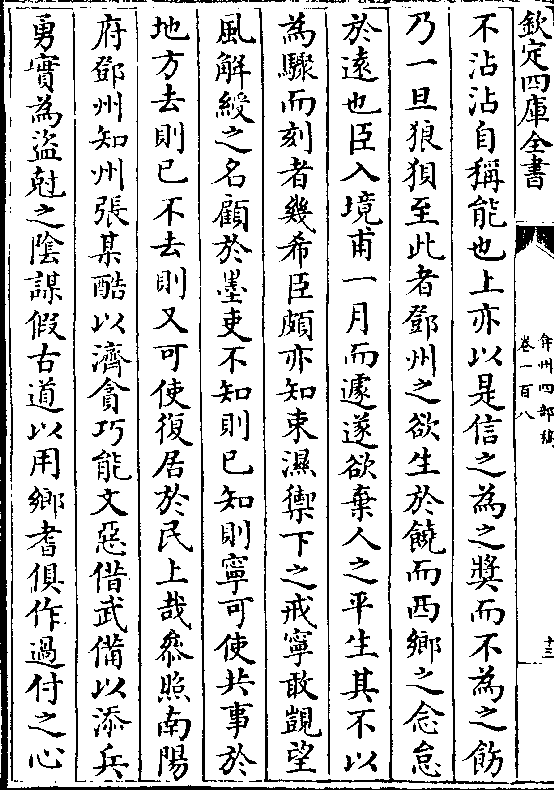 欽定四庫全書
弇州四部稿
卷一百八
十三
不沾沾自稱能也上亦以是信之為之獎而不為之飭
乃一旦狼狽至此者鄧州之欲生於饒而西鄉之念怠
於遠也臣入境甫一月而遽遂欲棄人之平生其不以
為驟而刻者幾希臣頗亦知束濕禦下之戒寧敢覬望
風解綬之名顧於墨吏不知則已知則寧可使共事於
地方去則已不去則又可使復居於民上哉叅照南陽
府鄧州知州張某酷以濟貪巧能文惡借武備以添兵
勇實為盜尅之陰謀假古道以用鄉耆俱作過付之心